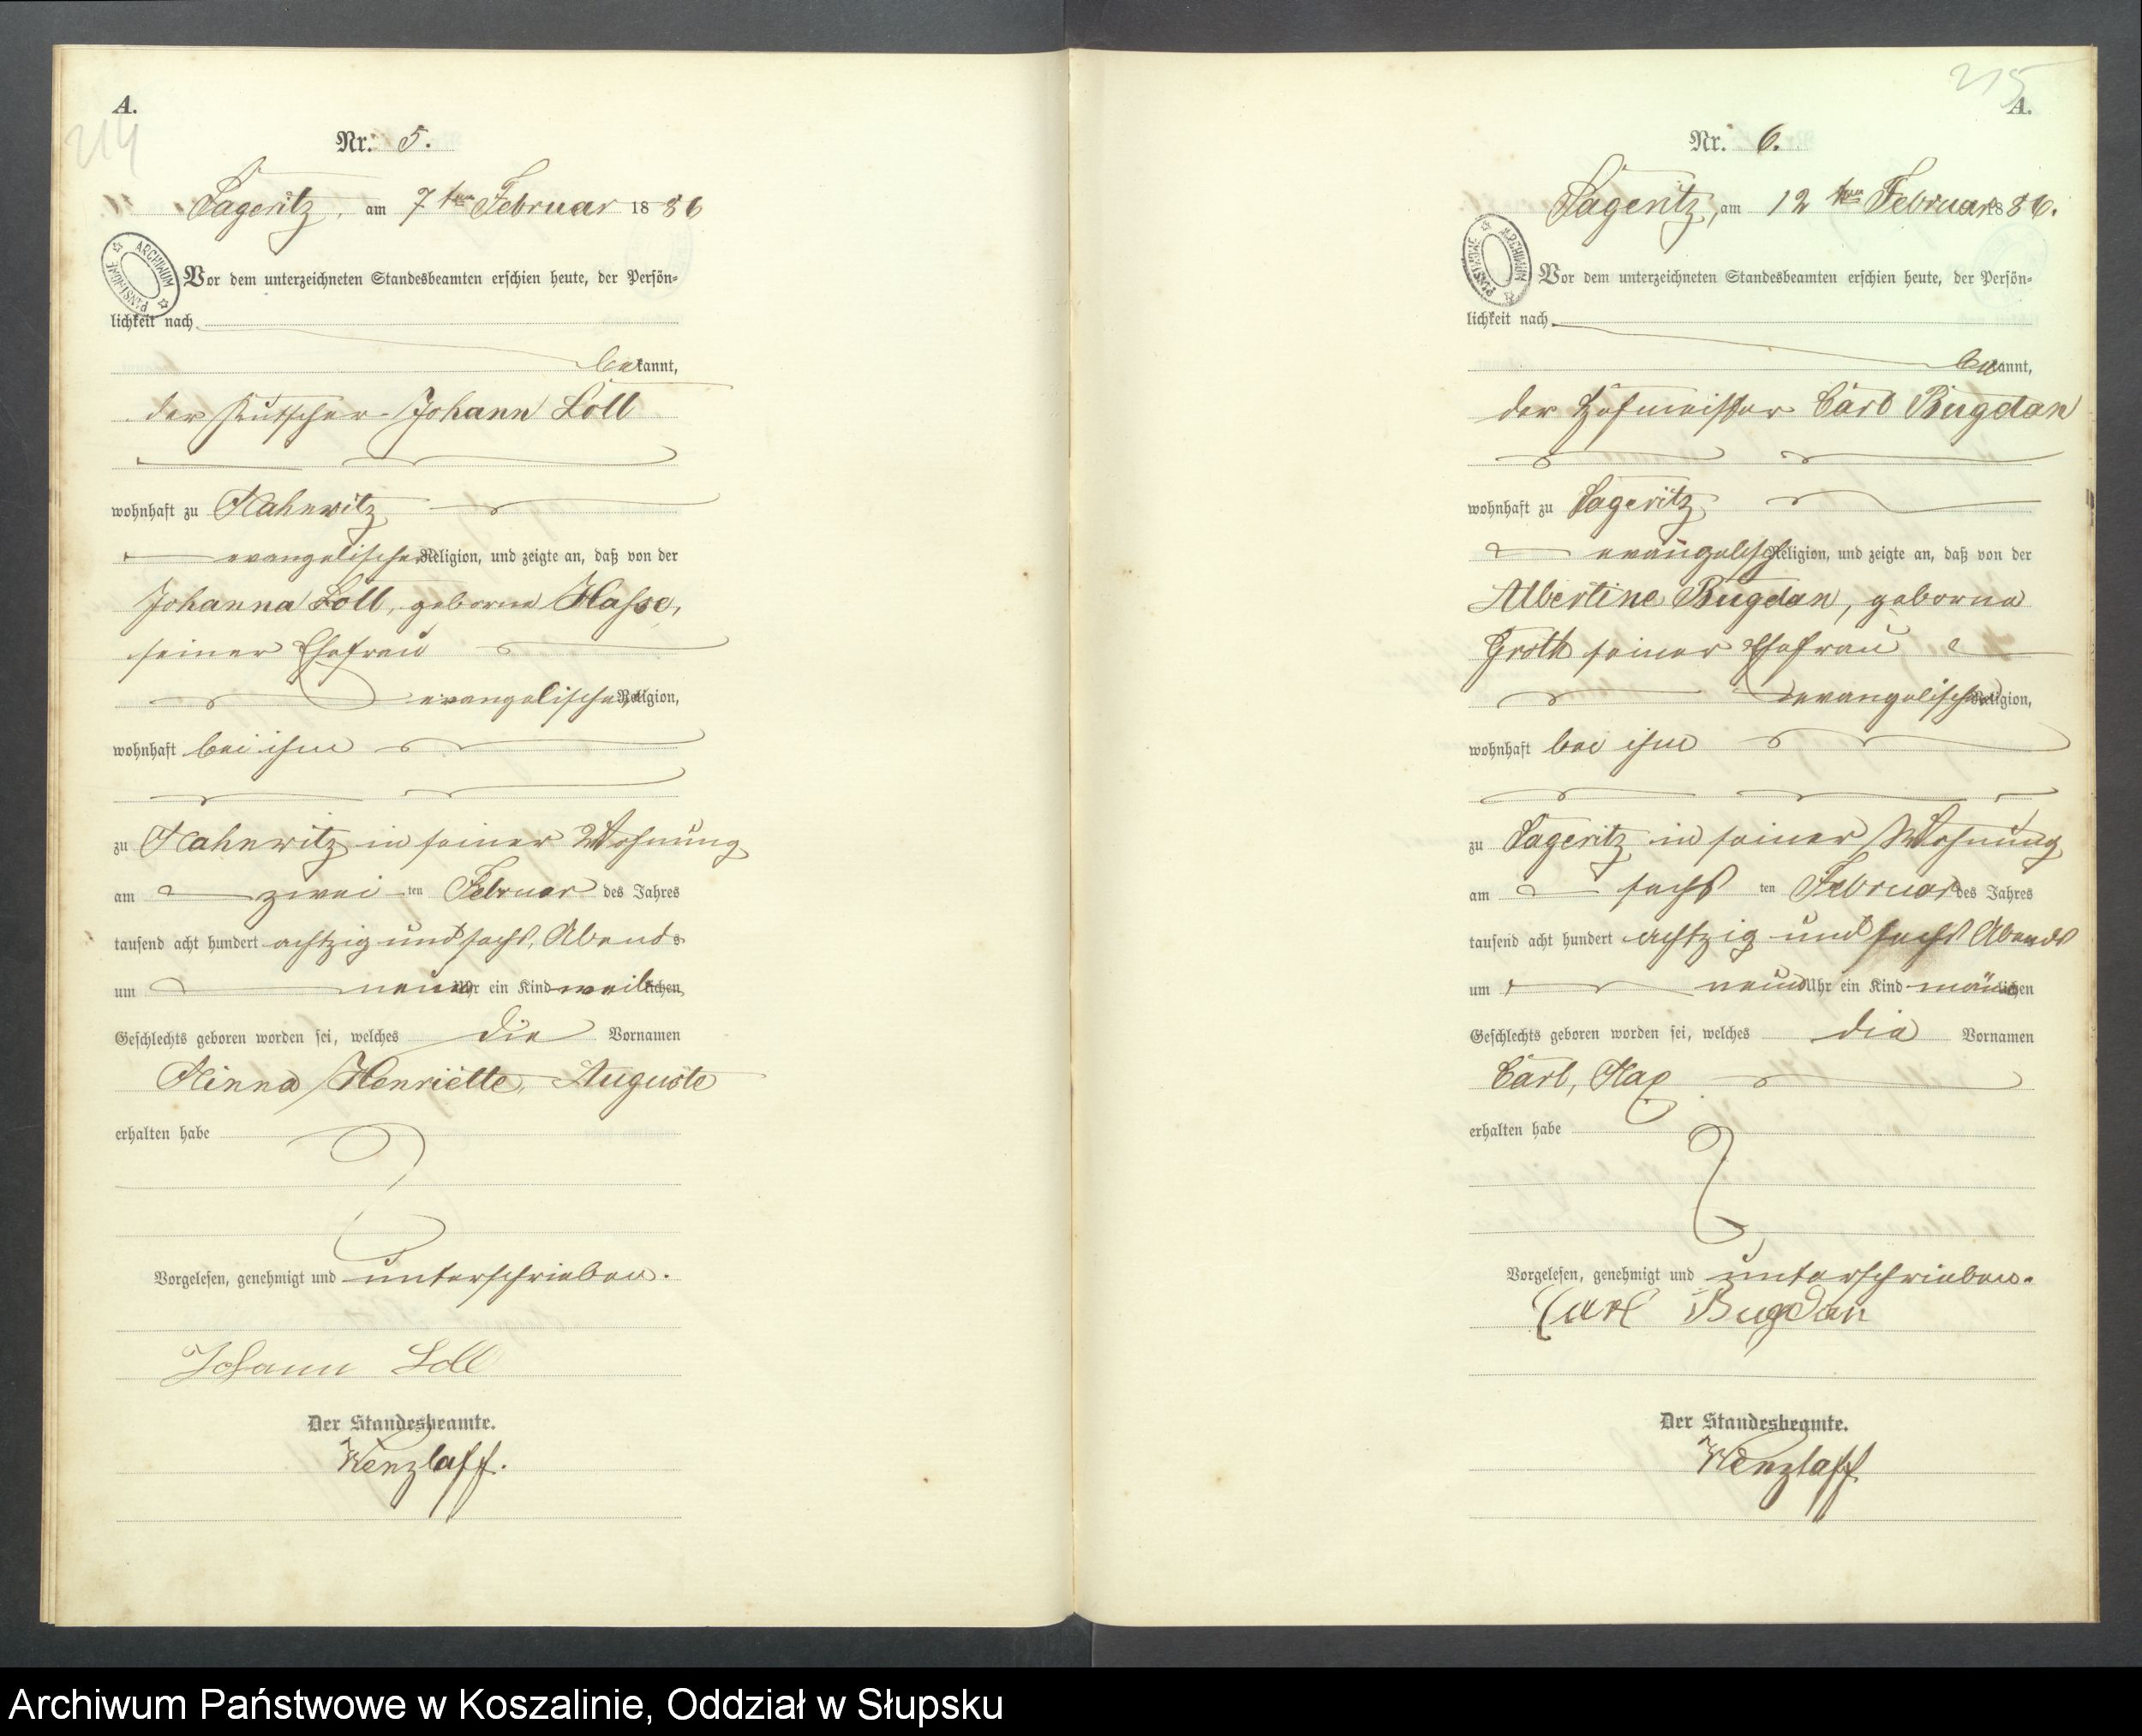 A.
214
Nr. 5.
Sageritz, am 7ten Februar 1886
ARCHIWUM PAŃSTWOWE
Vor dem unterzeichneten Standesbeamten erschien heute, der Persön-
lichkeit nach
bekannt,
der Kutscher Johann Loll
wohnhaft zu Mahnwitz
evangelischer Religion, und zeigte an, daß von der
Johanna Loll, geborne Hasse,
seiner Ehefrau
evangelischer Religion,
wohnhaft bei ihm
zu Mahnwitz in seiner Wohnung
am zwei ten Februar des Jahres
tausend acht hundert achtzig und sechs, Abends
um neun Uhr ein Kind weiblichen
Geschlechts geboren worden sei, welches die Vornamen
Minna Henriette, Auguste
erhalten habe
Vorgelesen, genehmigt und unterschrieben.
Johann Loll
Der Standesbeamte.
Wenzlaff.
215
A.
Nr. 6.
Sageritz, am 12ten Februar 1886.
ARCHIWUM PAŃSTWOWE
Vor dem unterzeichneten Standesbeamten erschien heute, der Persön-
lichkeit nach
bekannt,
der Hofmeister Carl Bugdan
wohnhaft zu Sageritz
evangelisch Religion, und zeigte an, daß von der
Albertine Bugdan, geborne
Groth seiner Ehefrau
evangelischer Religion,
wohnhaft bei ihm
zu Sageritz in seiner Wohnung
am sechs ten Februar des Jahres
tausend acht hundert achtzig und sechs Abends
um neun Uhr ein Kind männlichen
Geschlechts geboren worden sei, welches die Vornamen
Carl, Max
erhalten habe
Vorgelesen, genehmigt und unterschrieben.
Carl Bugdan
Der Standesbeamte.
Wenzlaff
Archiwum Państwowe w Koszalinie, Oddział w Słupsku